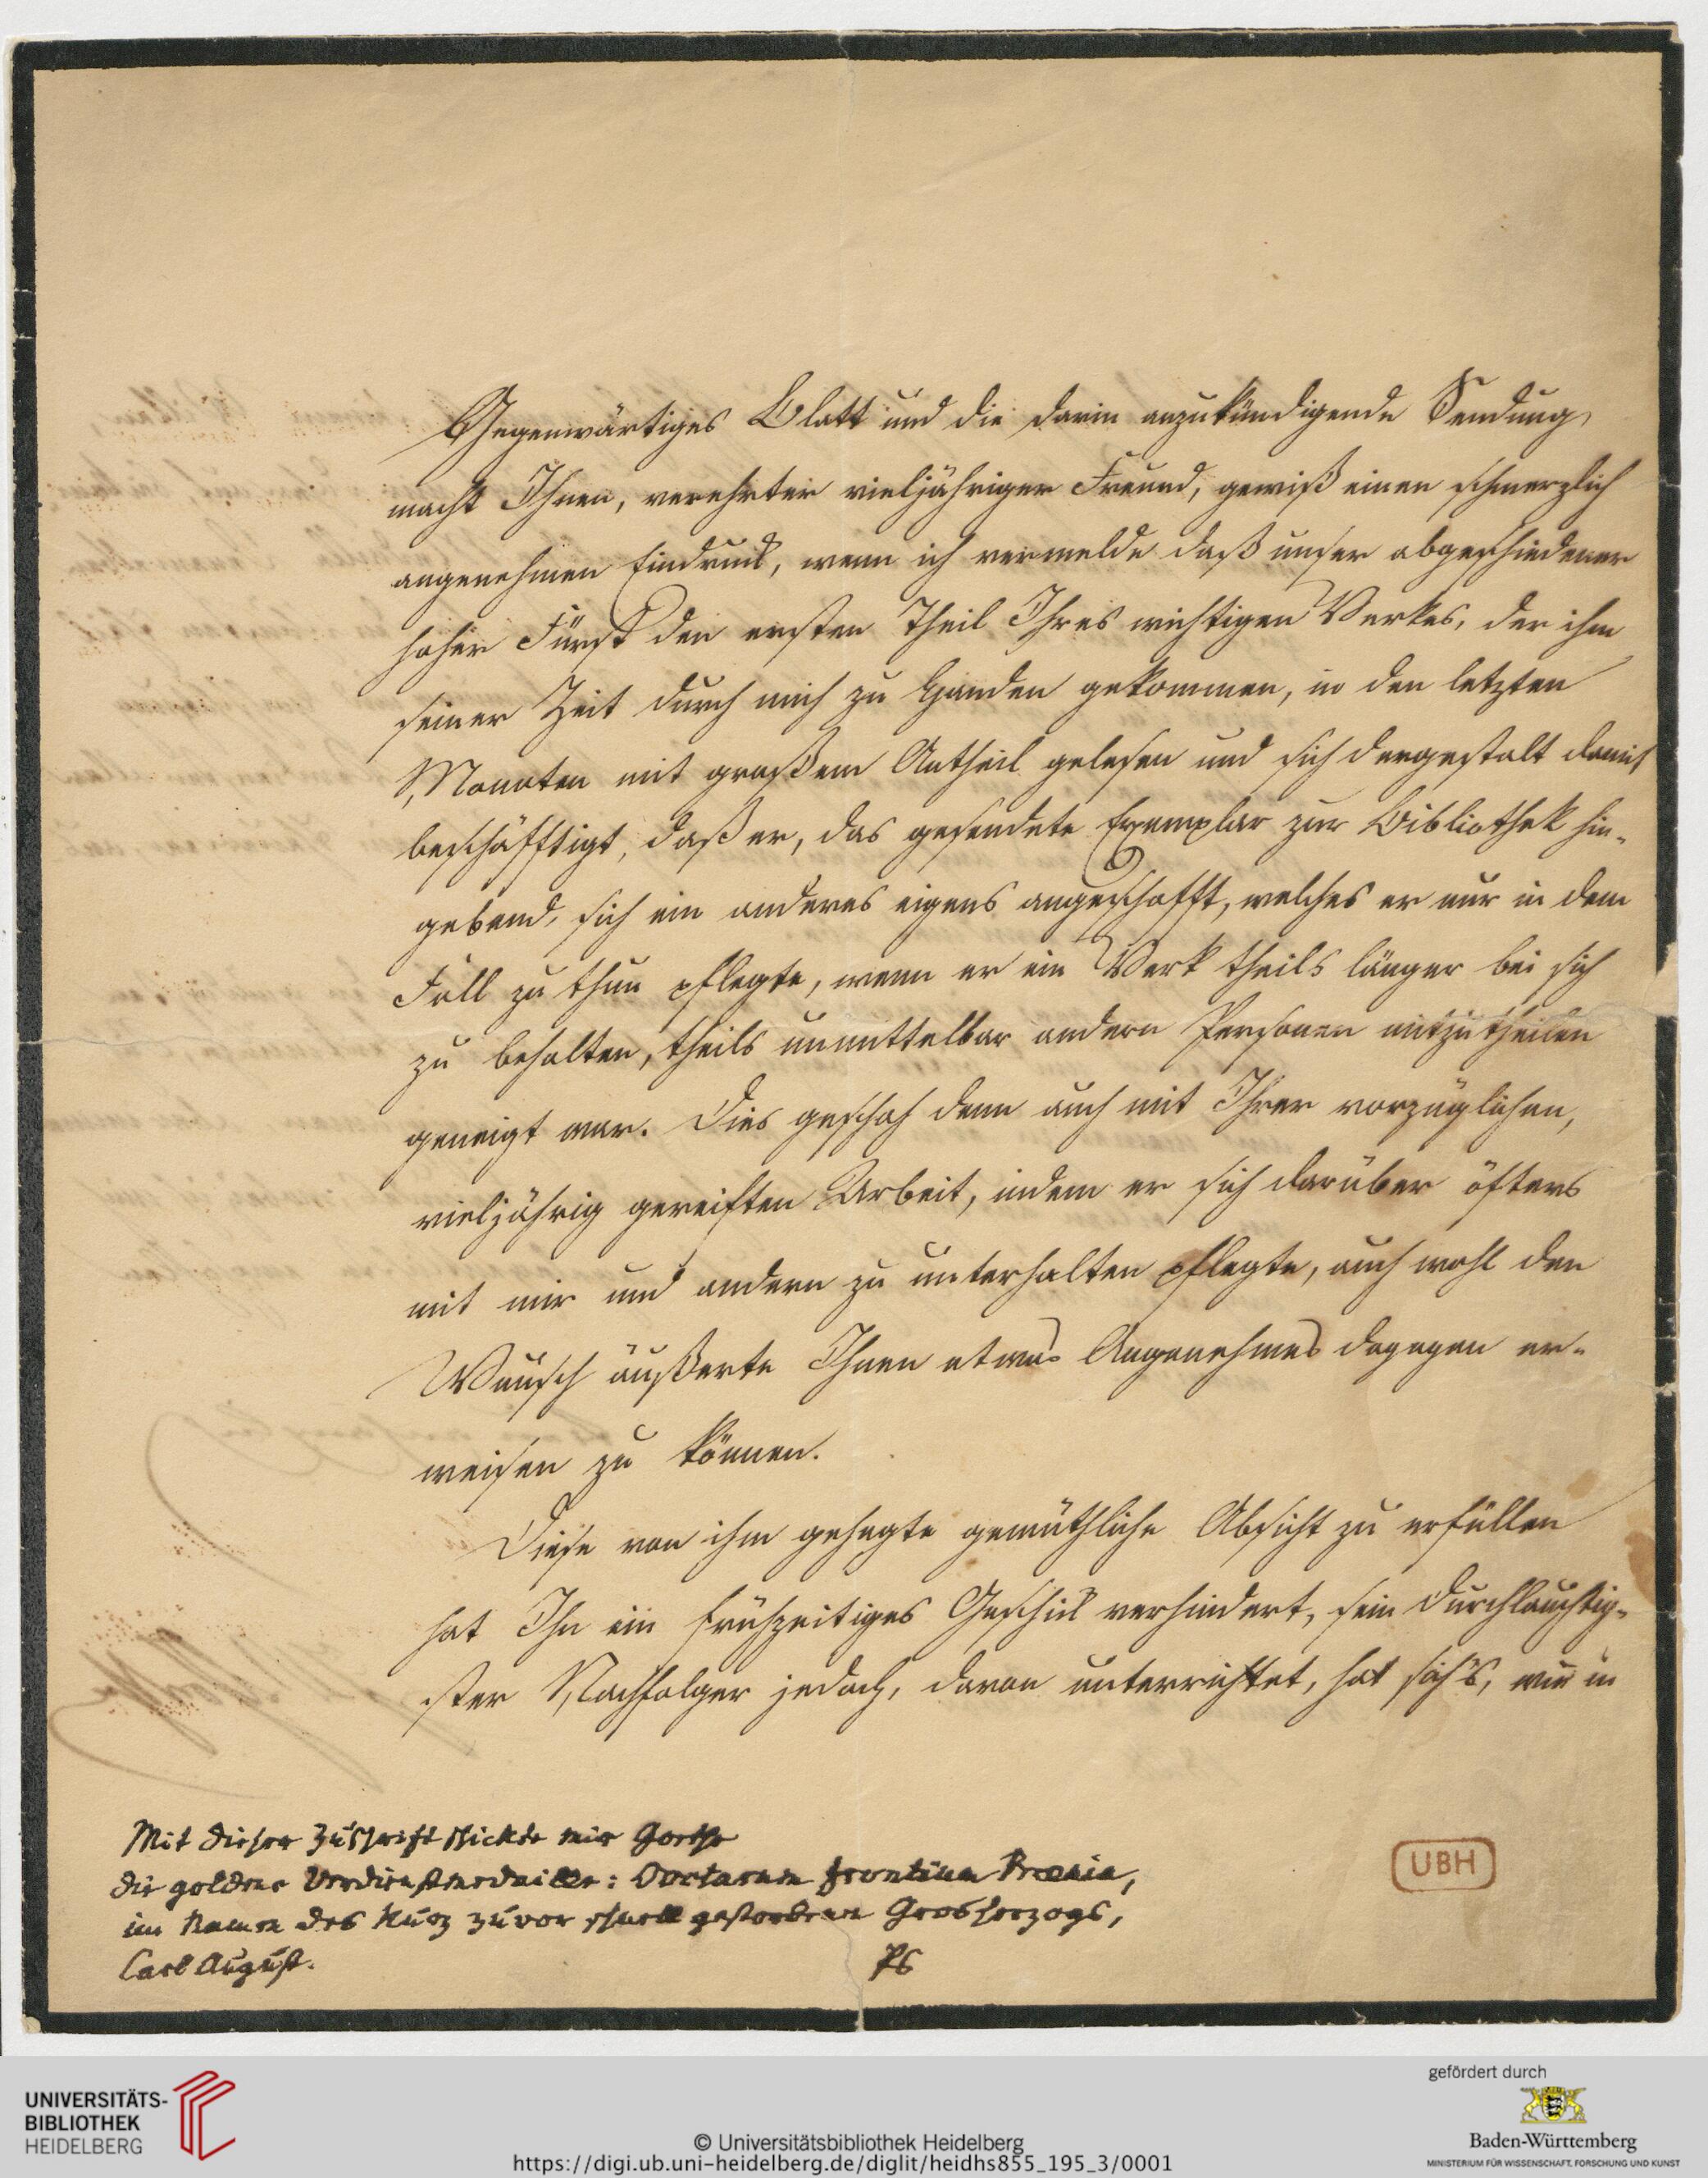 Gegenwärtiges Blatt und die darin anzukündigende Sendung,
macht Ihnen, verehrter vieljähriger Freund, gewiß einen schmerzlich
angenehmen Eindruck, wenn ich vermelde daß unser abgeschiedener
hoher Fürst den ersten Theil Ihres wichtigen Werkes, der ihm
seiner Zeit durch mich zu Handen gekommen, in den letzten
Monaten mit großem Antheil gelesen und sich dergestalt damit
beschäfftigt, daß er, das gesendete Exemplar zur Bibliothek hin-
gebend, sich ein anderes eigens angeschafft, welches er nur in dem
Fall zu thun pflegte, wenn er ein Werk theils länger bei sich
zu behalten, theils unmittelbar andern Personen mitzutheilen
geneigt war. Dies geschah denn auch mit Ihrer vorzüglichen,
vieljährig gereiften Arbeit, indem er sich darüber öfters
mit mir und andern zu unterhalten pflegte, auch wohl den
Wunsch äußerte Ihnen etwas Angenehmes dagegen er-
weisen zu können.
Diese von ihm gehegte gemüthliche Absicht zu erfüllen
hat Ihn ein frühzeitiges Geschick verhindert, sein Durchlauchtig-
ster Nachfolger jedoch, davon unterrichtet, hat sich's, wie in
Mit dieser Zuschrift schickte mir Goethe
die goldene Verdienstmedaille: Doctarum frontium Praemia,
im Namen des kurz zuvor schnell gestorbenen Grosherzogs,
Carl August.
PS
UBH
UNIVERSITÄTS-
BIBLIOTHEK
HEIDELBERG
© Universitätsbibliothek Heidelberg
https://digi.ub.uni-heidelberg.de/diglit/heidhs855_195_3/0001
gefördert durch
Baden-Württemberg
MINISTERIUM FÜR WISSENSCHAFT, FORSCHUNG UND KUNST